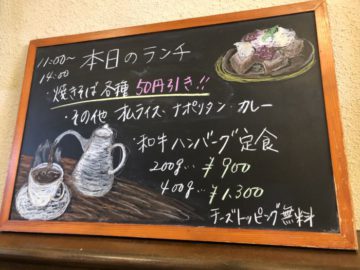 11:00〜14:00
本日のランチ
・焼きそば 各種 50円引き!!
・その他 オムライス・ナポリタン・カレー
・和牛ハンバーグ定食
200g…¥900
400g…¥1,300
チーズトッピング無料